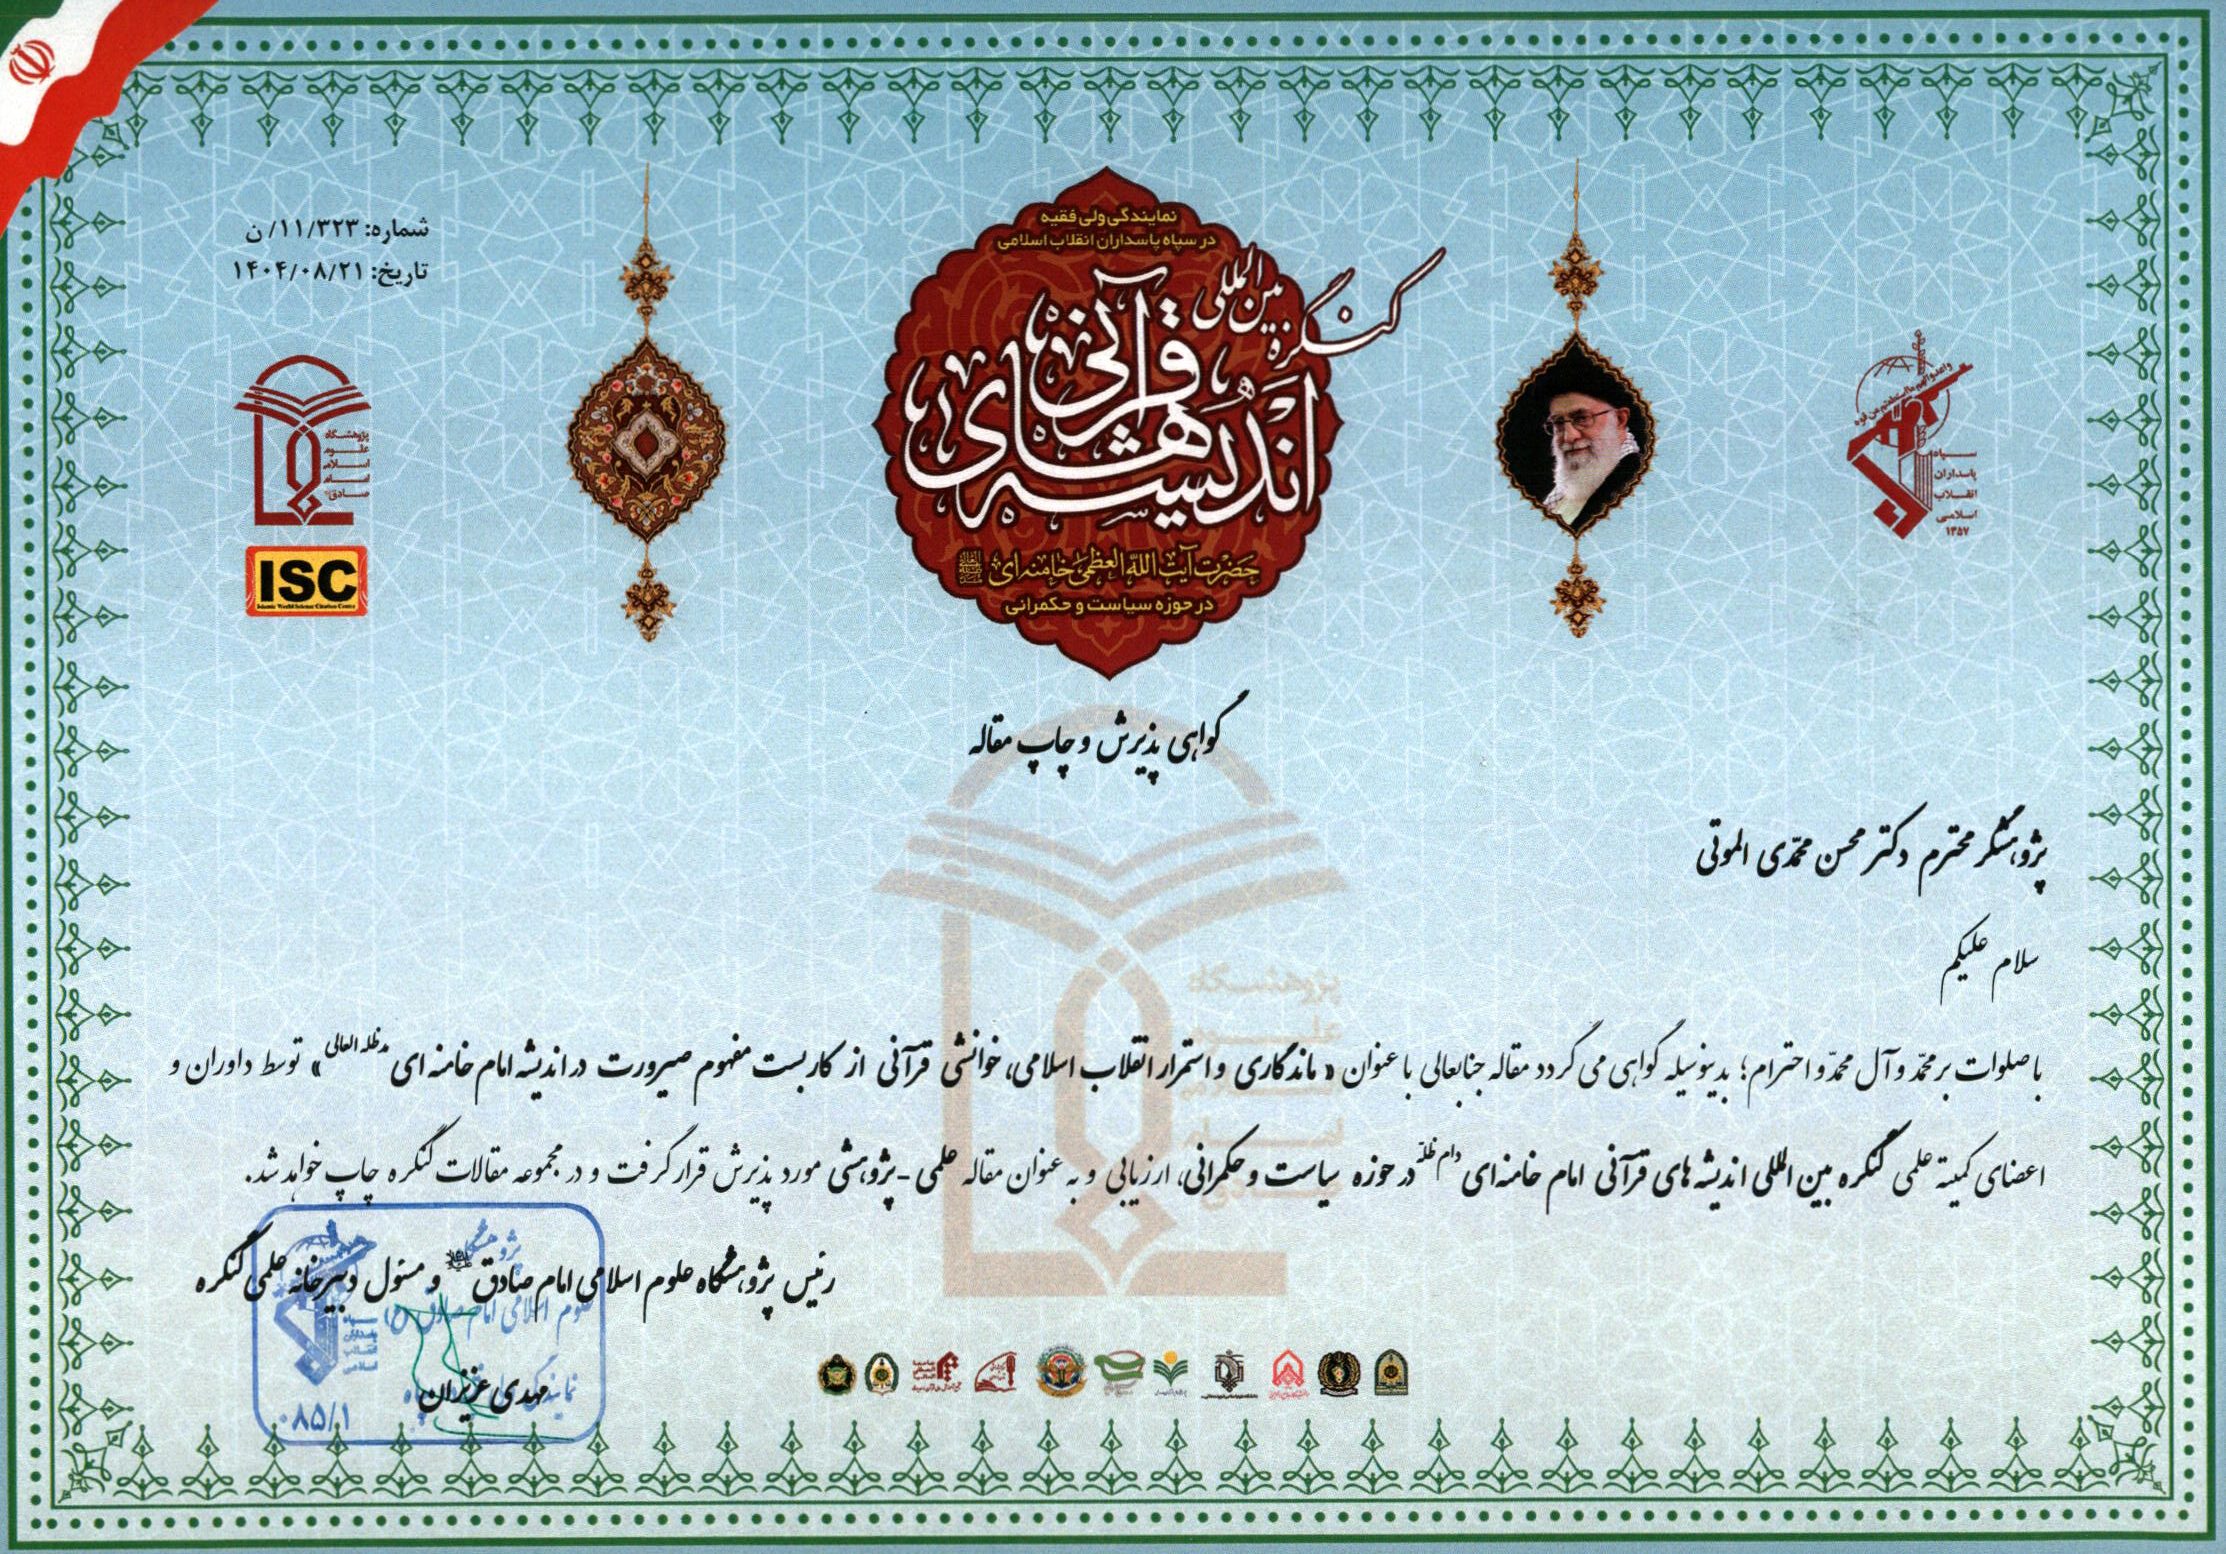 شماره: ۱۱/۳۲۳/ن
تاریخ: ۱۴۰۴/۰۸/۲۱
نمایندگی ولی فقیه
در سپاه پاسداران انقلاب اسلامی
کنگره بین المللی
اندیشه های قرآنی
حضرت آیت الله العظمی خامنه ای
در حوزه سیاست و حکمرانی
سپاه
پاسداران
انقلاب
اسلامی
۱۳۵۷
پژوهشگاه
علوم
اسلامی
امام
صادق
ISC
Islamic World Science Citation Center
گواهی پذیرش و چاپ مقاله
پژوهشگر محترم دکتر محسن محمّدی الموتی
سلام علیکم
با صلوات بر محمّد و آل محمّد و احترام؛ بدینوسیله گواهی می گردد مقاله جنابعالی با عنوان « ماندگاری و استمرار انقلاب اسلامی، خوانشی قرآنی از کاربست مفهوم صیرورت در اندیشه امام خامنه ای مدظله العالی » توسط داوران و
اعضای کمیته علمی کنگره بین المللی اندیشه های قرآنی امام خامنه ای دام ظلّه در حوزه سیاست و حکمرانی، ارزیابی و به عنوان مقاله علمی - پژوهشی مورد پذیرش قرار گرفت و در مجموعه مقالات کنگره چاپ خواهد شد.
رئیس پژوهشگاه علوم اسلامی امام صادق و مسئول دبیرخانه علمی کنگره
مهدی عزیزان
پژوهشگاه
علوم اسلامی امام صادق (ع)
سپاه
پاسداران
انقلاب
اسلامی
۰۸۵/۱